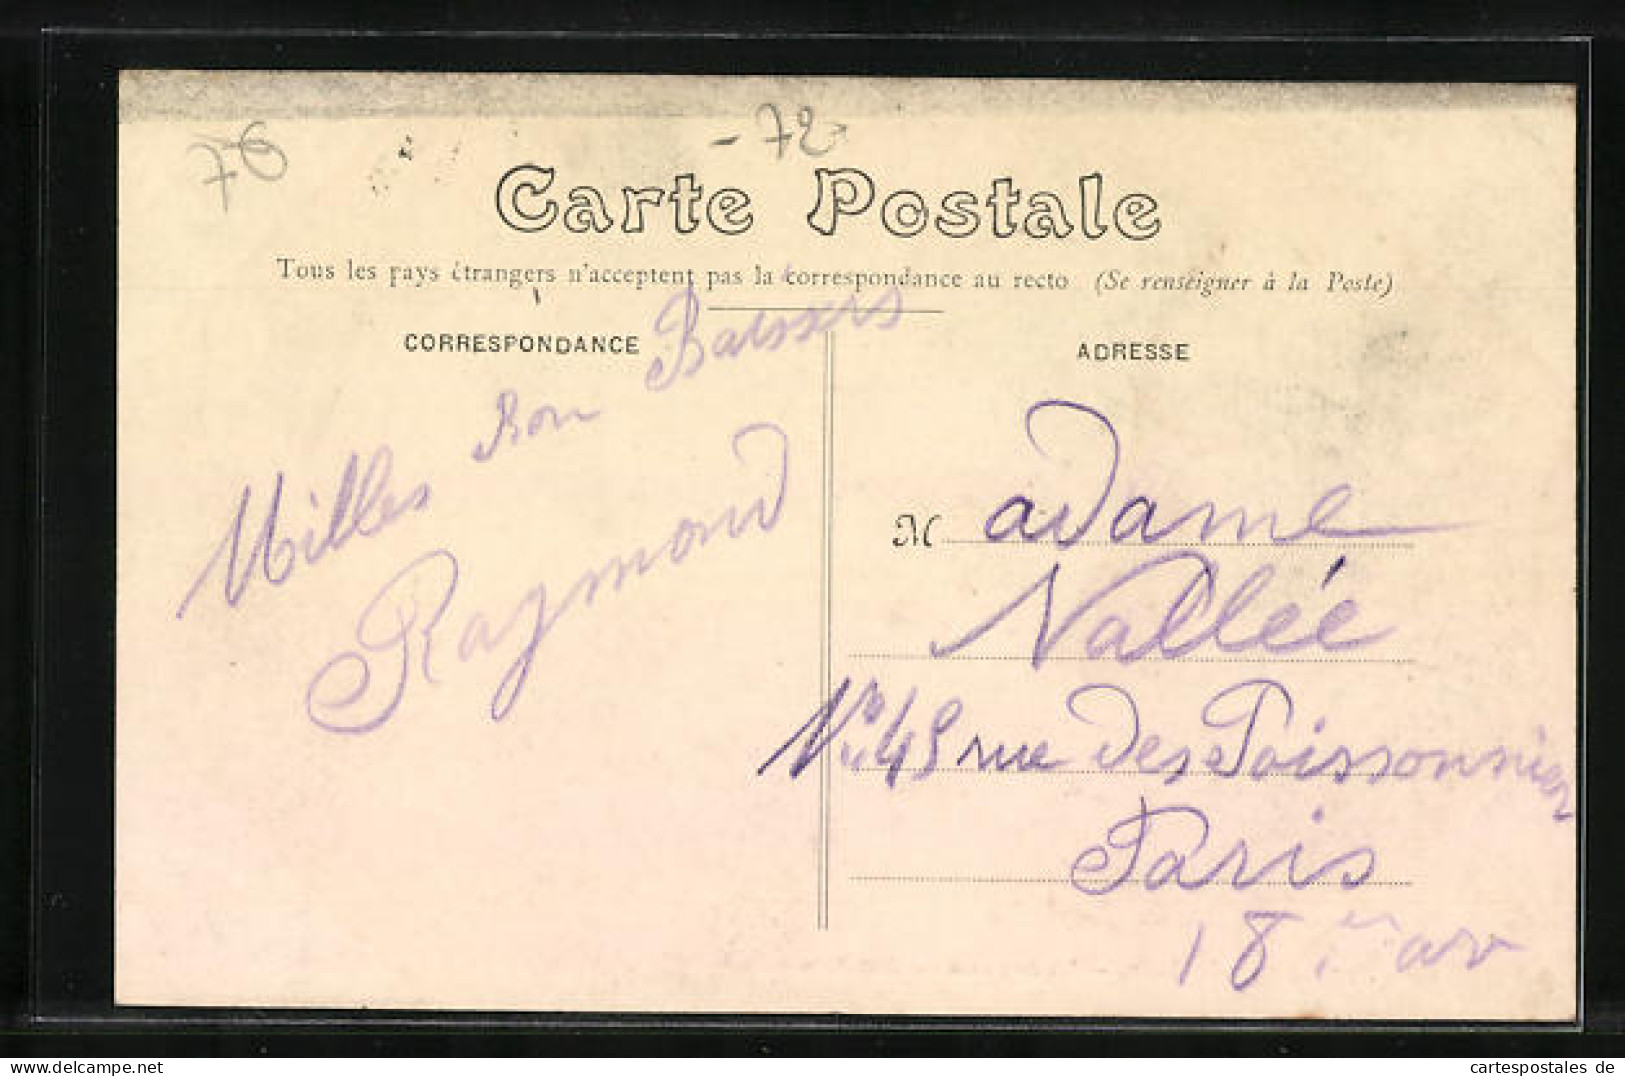 76
- 72
Carte Postale
Tous les pays étrangers n'acceptent pas la correspondance au recto (Se renseigner à la Poste)
CORRESPONDANCE
Milles Bon Baissers
Raymond
ADRESSE
M adame
Vallée
No 49 rue des Poissonnier
Paris
18 ar
cartespostales de